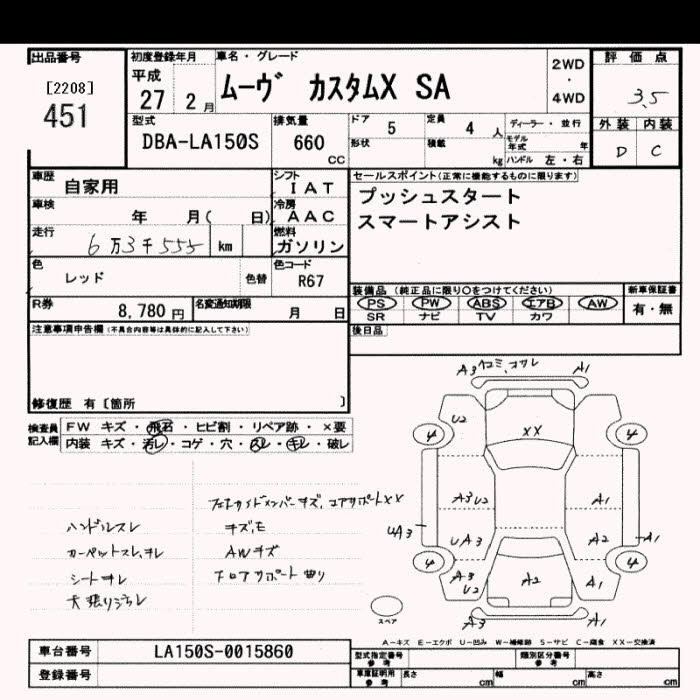 出品番号
[2208]
451
初度登録年月
平成
27 2 月
車名・グレード
ムーヴ カスタムX SA
2WD
・
4WD
評価点
3.5
外装 内装
D C
型式
DBA-LA150S
排気量
660
CC
ドア 5
形状
定員 4 人
積載 kg
ディーラー・並行
モデル年式 年
ハンドル 左・右
車歴 自家用
シフト IAT
車検 年 月( 日)
冷房 AAC
走行 6万3千555 km
燃料 ガソリン
色 レッド 色替
色コード R67
R券 8,780 円
名変通知期限 月 日
セールスポイント(正常に機能するものに限ります)
プッシュスタート
スマートアシスト
装備品(純正品に限り○をつけてください)
PS PW ABS エアB AW
SR ナビ TV カワ
新車保証書
有・無
後日品
注意事項申告欄(不具合内容等は具体的に記入して下さい)
修復歴 有〔箇所 〕
検査員記入欄
FW キズ・飛石・ヒビ割・リペア跡・×要
内装 キズ・汚レ・コゲ・穴・スレ・キレ・破レ
フロントサイドメンバーキズ,コアサポートXX
ハンドルスレ キズ,E
カーペットスレ,ヨレ AWキズ
シートヨレ フロアサポート曲リ
天張リヨゴレ
A3 ヘコミ,コスレ A1
U2
XX
4 4
A3 U2 A1
UA3 UA3 A2 A1
4 4
A3 U2 A2 A1
A3 A1
スペア
A−キズ E−エクボ U−凹み W−補修跡 S−サビ C−腐食 XX−交換済
車台番号 LA150S-0015860
登録番号
型式指定番号 参考
類別区分番号 参考
車庫証明用 参考 長さ cm 幅 cm 高さ cm